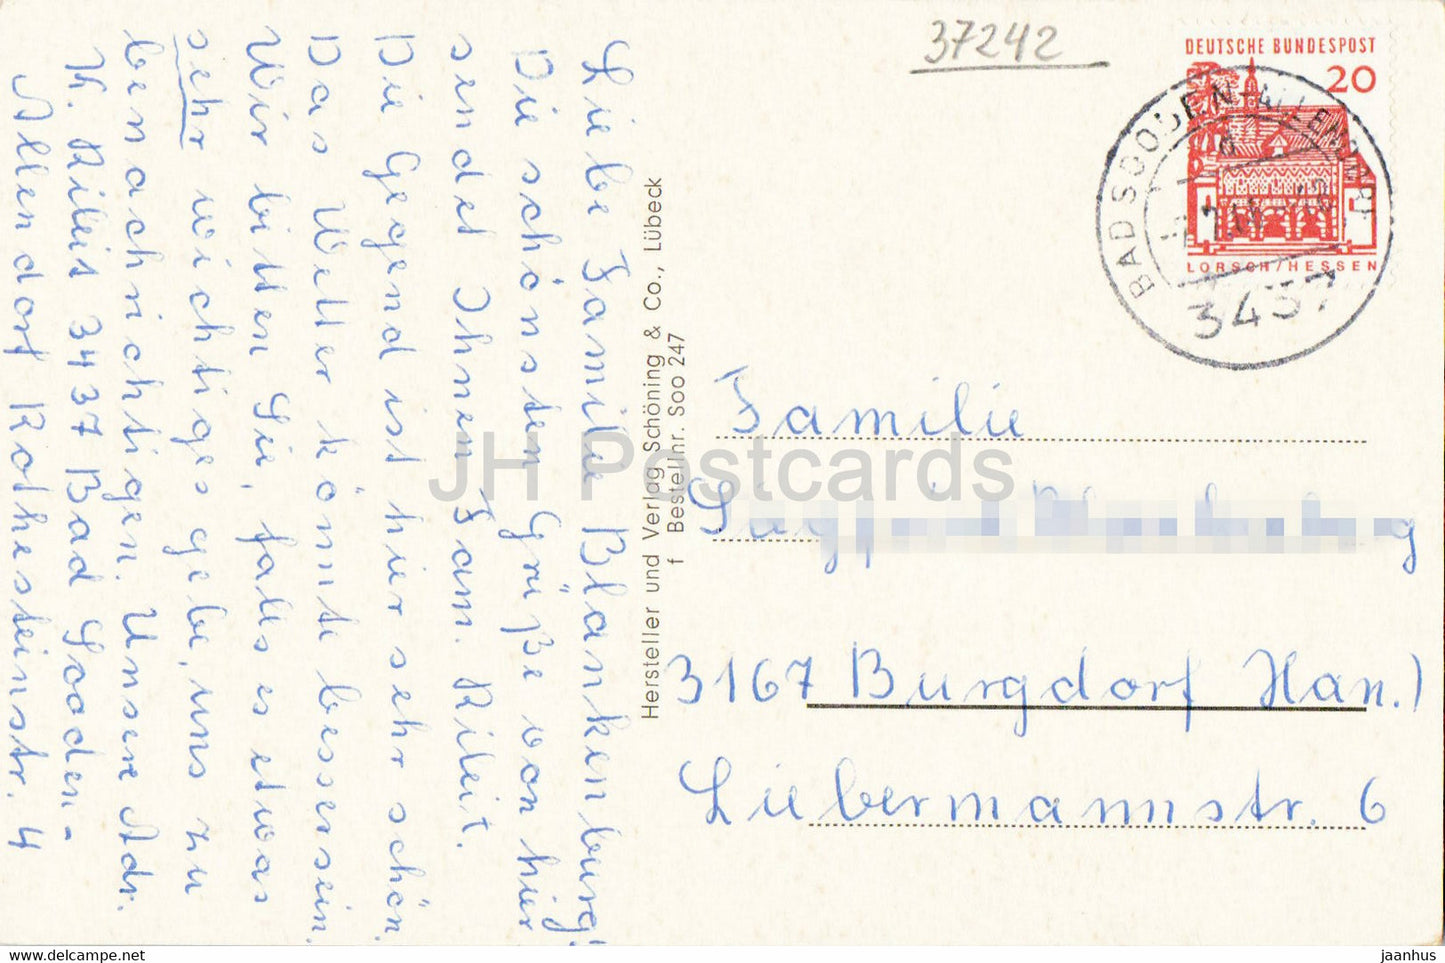 37242
DEUTSCHE BUNDESPOST
20
LORSCH/HESSEN
BAD SOODEN-ALLENDORF
3437
Liebe Familie Blankenburg!
Die schönsten Grüße von hier
sendet Ihnen Fam. Rileit.
Die Gegend ist hier sehr schön.
Das Wetter könnte besser sein.
Wir bitten Sie, falls es etwas
sehr wichtiges gebe, uns zu
benachrichtigen. Unsere Adr.
K. Rileit 3437 Bad Sooden-
Allendorf Rothesteinstr. 4
Hersteller und Verlag Schöning & Co., Lübeck
f Bestellnr. Soo 247
Familie
3167 Burgdorf Han.)
Liebermannstr. 6
JH Postcards
www.delcampe.net
jaanhus